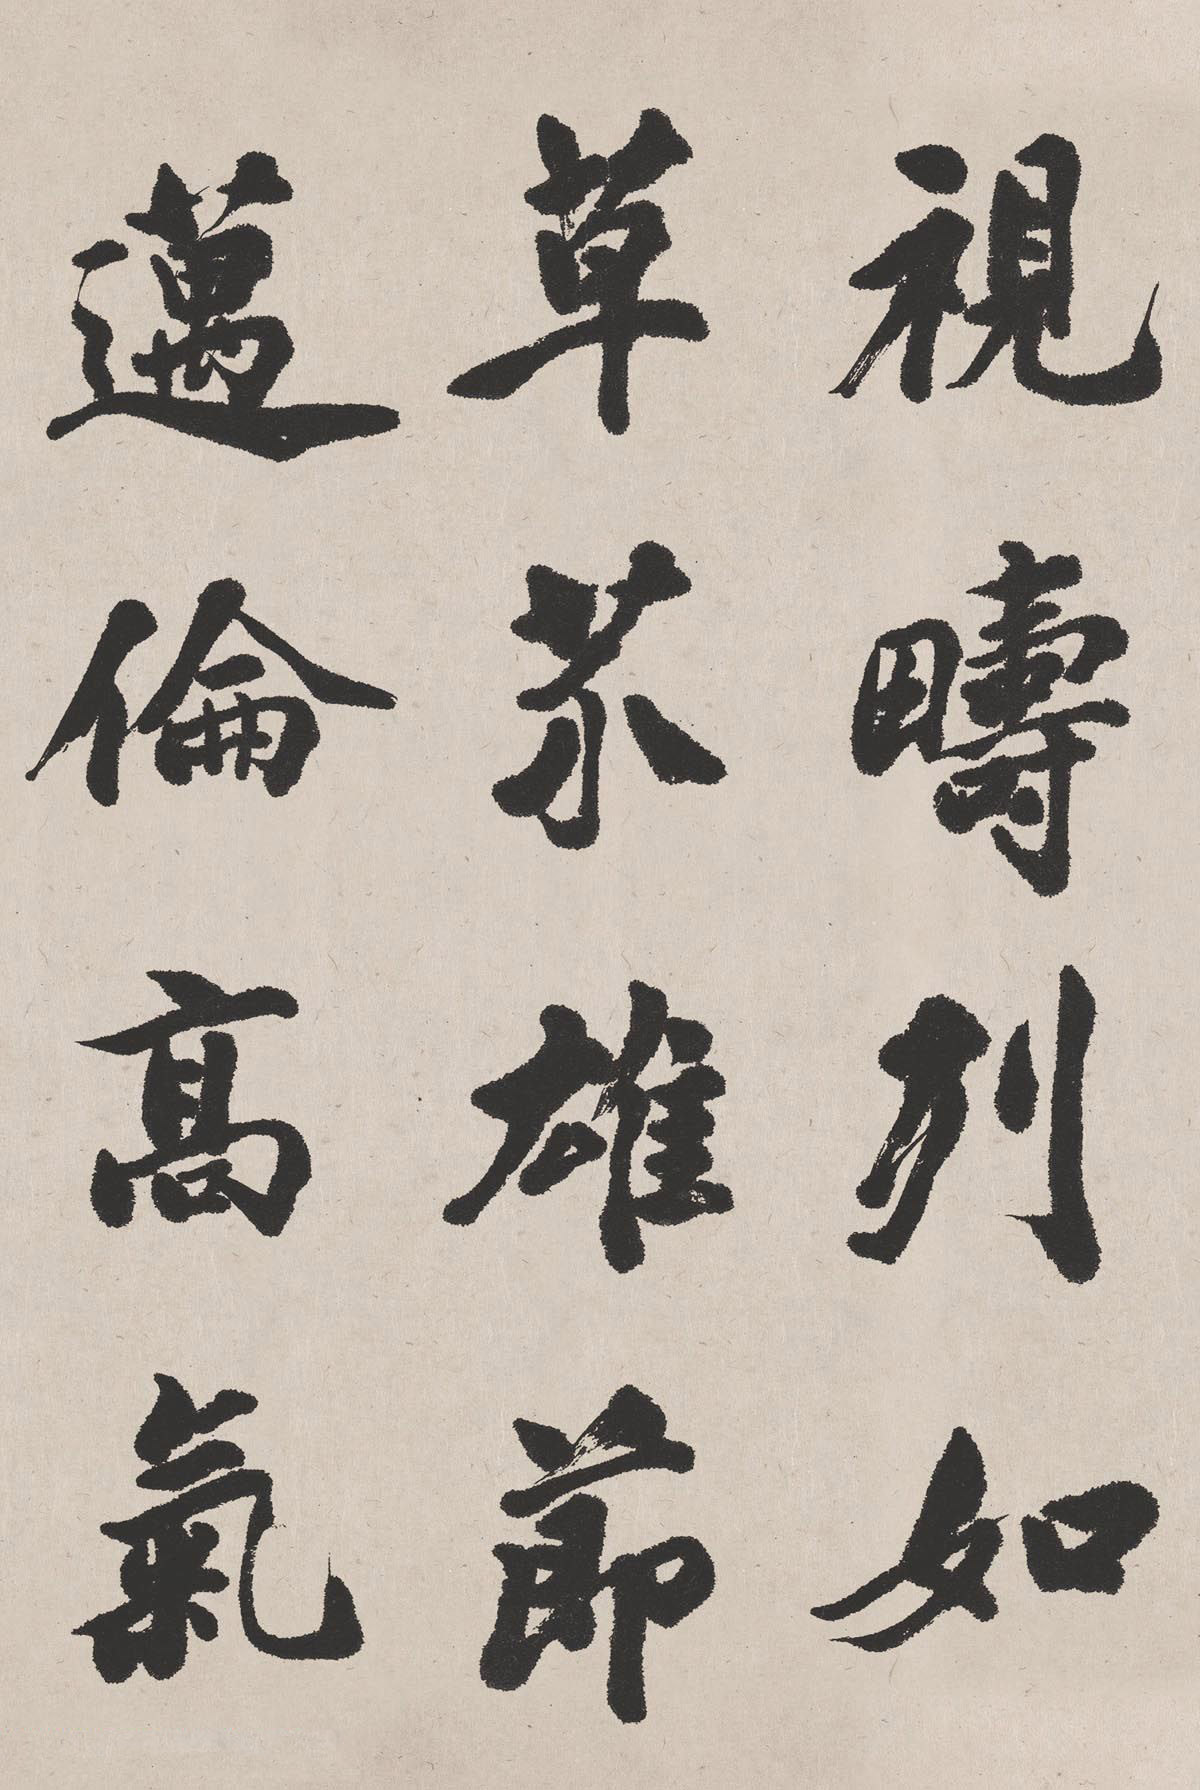 視疇列如
草芥雄節
邁倫高氣